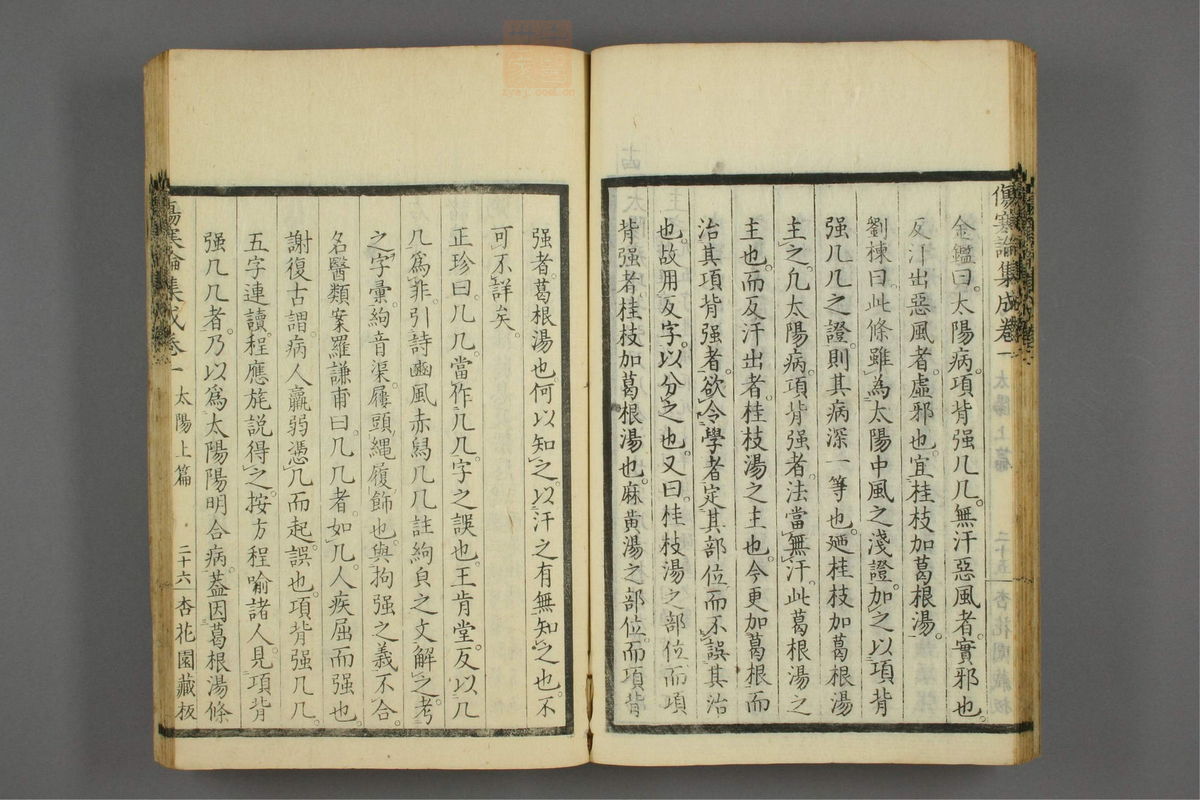 傷寒論集成卷一
金鑑曰太陽病項背强几几無汗惡風者實邪也
反汗出惡風者虛邪也宜桂枝加葛根湯
劉棟曰此條雖爲太陽中風之淺證加之以項背
强几几之證則其病深一等也廼桂枝加葛根湯
主之凡太陽病項背强者法當無汗此葛根湯之
主也而反汗出者桂枝湯之主也今更加葛根而
治其項背强者欲令學者定其部位而不誤其治
也故用反字以分之也又曰桂枝湯之部位而項
背强者桂枝加葛根湯也麻黄湯之部位而項背
强者葛根湯也何以知之以汗之有無知之也不
可不詳矣
正珍曰几几當作几几字之誤也王肯堂反以几
几爲非引詩豳風赤舄几几註絇貌之文解之考
之字彙絇音渠屨頭繩履飾也與拘强之義不合
名醫類案羅謙甫曰几几者如几人疾屈而强也
謝復古謂病人羸弱憑几而起誤也項背强几几
五字連讀程應旄説得之按方程喻諸人見項背
强几几者乃以爲太陽陽明合病蓋因葛根湯條
傷寒論集成卷一 太陽上篇 二十六 杏花園藏板